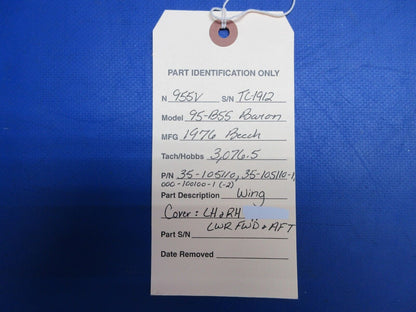 PART IDENTIFICATION ONLY
N 955V S/N TC1912
Model 95-B55 Baron
MFG 1976 Beech
Tach/Hobbs 3,076.5
P/N 35-105110, 35-105110-1,
000-100100-1 (-2)
Part Description Wing
Cover: LH & RH
LWR FWD & AFT
Part S/N
Date Removed